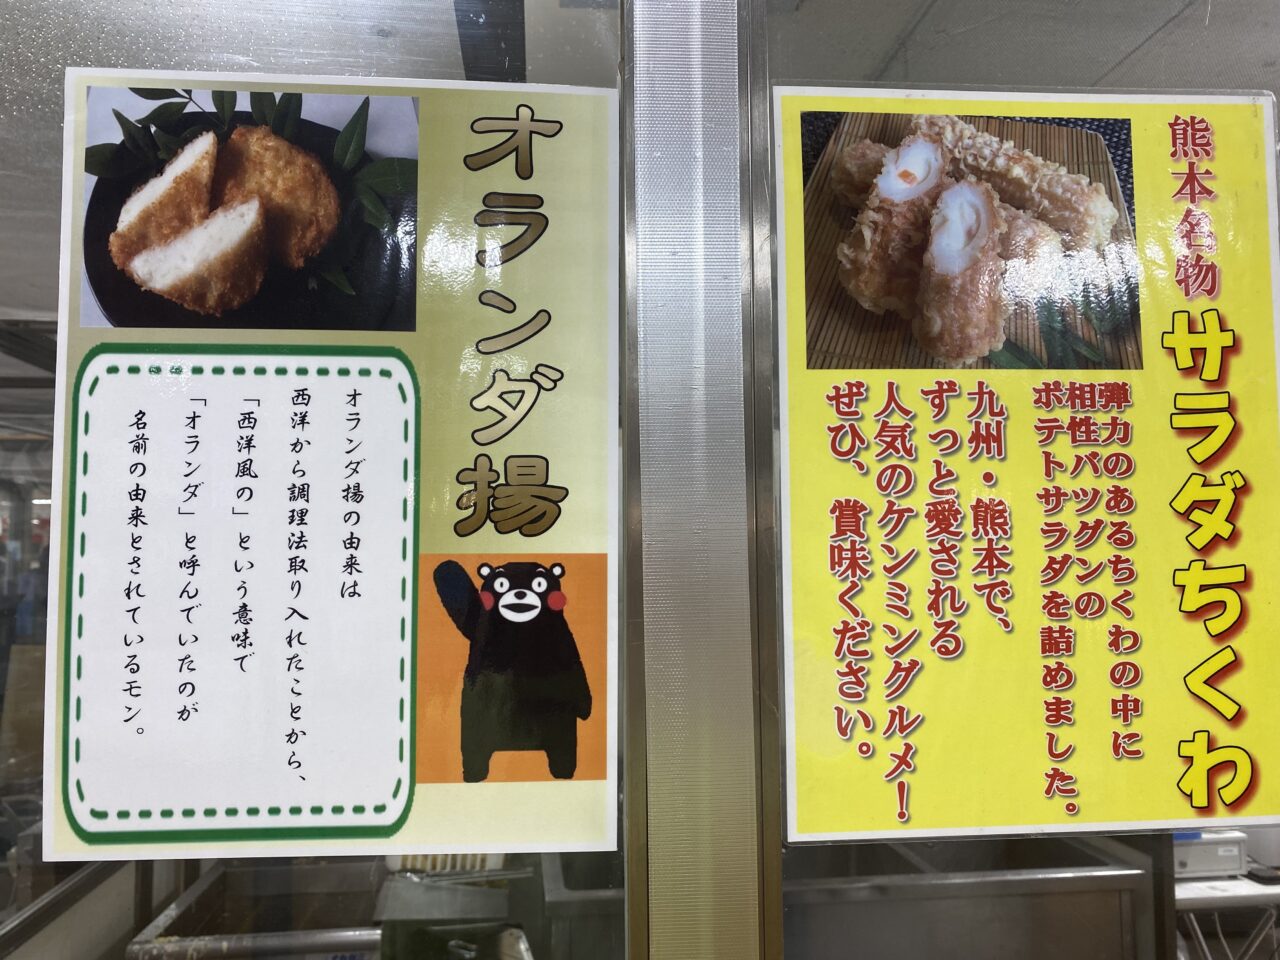 オランダ揚
オランダ揚の由来は
西洋から調理法取り入れたことから、
「西洋風の」という意味で
「オランダ」と呼んでいたのが
名前の由来とされているモン。
熊本名物
サラダちくわ
弾力のあるちくわの中に
相性バツグンの
ポテトサラダを詰めました。
九州・熊本で、
ずっと愛される
人気のケンミングルメ！
ぜひ、賞味ください。